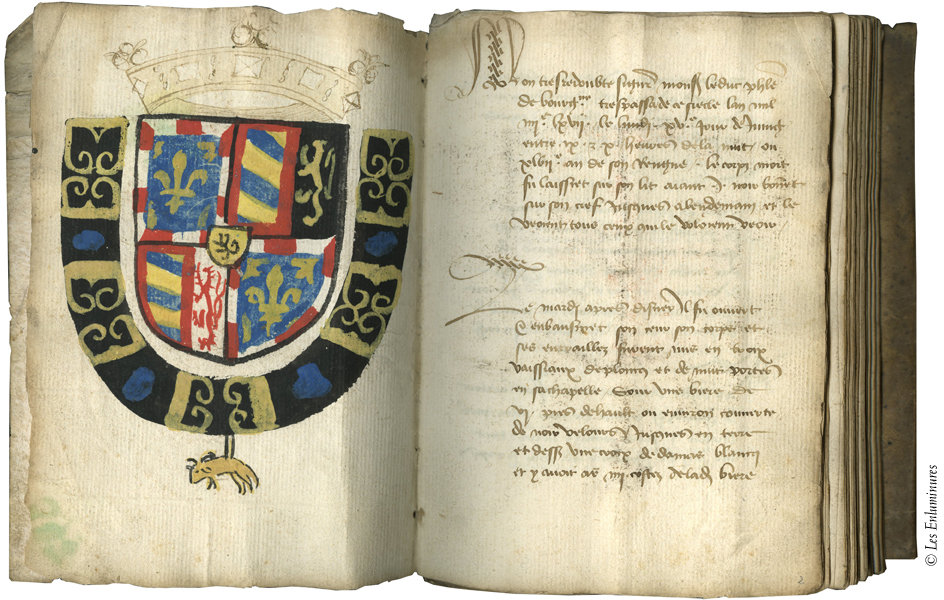 Mon tresredoubte signeur monsr le duc phle
de bourgne trespassa de ce siecle lan mil
iiiic lxvii. le lundi. xve jour de juing
entre. ix. z x. heures de la nuit / ou
xlviie an de son Rengne. le corps mort
fu laissiet sur son lit aiant. j. noir bonnet
sur son cief jusques a lendemain et le
veoient tous ceux qui le voloient veoir
Le mardi apres disner Il fu ouvert
z enbausmet son ceur son corps et
ses entrailles furent mis en trois
vaissiaux de plomc et de nuit portes
en sa chapelle Sour une biere de
vi. pies de hault ou environ couverte
de noir velours jusques en terre
et dess. une croix de damas blancq
et y avoit as iiii costes de lad. biere
2
© Les Enluminures